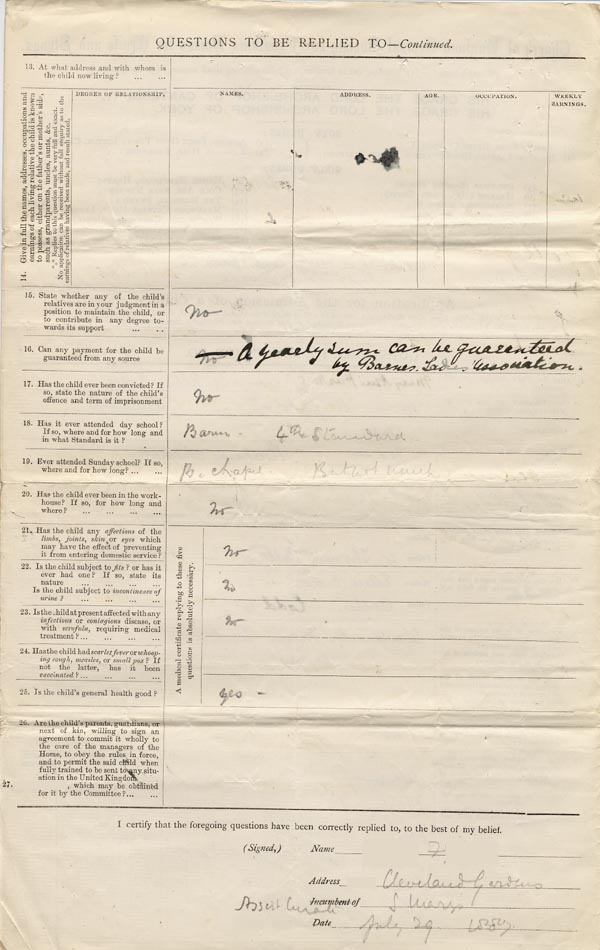 QUESTIONS TO BE REPLIED TO—Continued.
13. At what address and with whom is
the child now living? ... ...
14. Give in full the names, addresses, occupations and
earnings of each living relative the child is known
to possess, either on the father's or mother's side,
such as grandparents, uncles, aunts, &c.
*** Replies to this question must be very full and exact.
No application can be received without full enquiry as to the
earnings of relatives having been made, and result stated.
DEGREE OF RELATIONSHIP. NAMES. ADDRESS. AGE. OCCUPATION. WEEKLY
EARNINGS.
15. State whether any of the child's
relatives are in your judgment in a
position to maintain the child, or
to contribute in any degree to-
wards its support ... ...
No
16. Can any payment for the child be
guaranteed from any source
No A yearly sum can be guaranteed
by Barnes Ladies Association.
17. Has the child ever been convicted? If
so, state the nature of the child's
offence and term of imprisonment
No
18. Has it ever attended day school?
If so, where and for how long and
in what Standard is it?
Barnes 4th Standard
19. Ever attended Sunday school? If so,
where and for how long? ... ...
B. chapel But not much
20. Has the child ever been in the work-
house? If so, for how long and
where? ... ... ...
No
A medical certificate replying to these five
questions is absolutely necessary.
21. Has the child any affections of the
limbs, joints, skin or eyes which
may have the effect of preventing
it from entering domestic service?
No
22. Is the child subject to fits? or has it
ever had one? If so, state its
nature ... ... ...
Is the child subject to incontinence of
urine? ... ... ...
No
23. Is the child at present affected with any
infectious or contagious disease, or
with scrofula, requiring medical
treatment? ... ... ...
No
24. Has the child had scarlet fever or whoop-
ing cough, measles, or small pox? If
not the latter, has it been
vaccinated? ... ... ...
25. Is the child's general health good?
Yes –
26. Are the child's parents, guardians, or
next of kin, willing to sign an
agreement to commit it wholly to
the care of the managers of the
Home, to obey the rules in force,
and to permit the said child when
fully trained to be sent to any situ-
ation in the United Kingdom
27. , which may be obtained
for it by the Committee? ... ...
I certify that the foregoing questions have been correctly replied to, to the best of my belief.
(Signed,) Name
Address Cleveland Gardens
Assist Curate Incumbent of S Marys
Date July 29